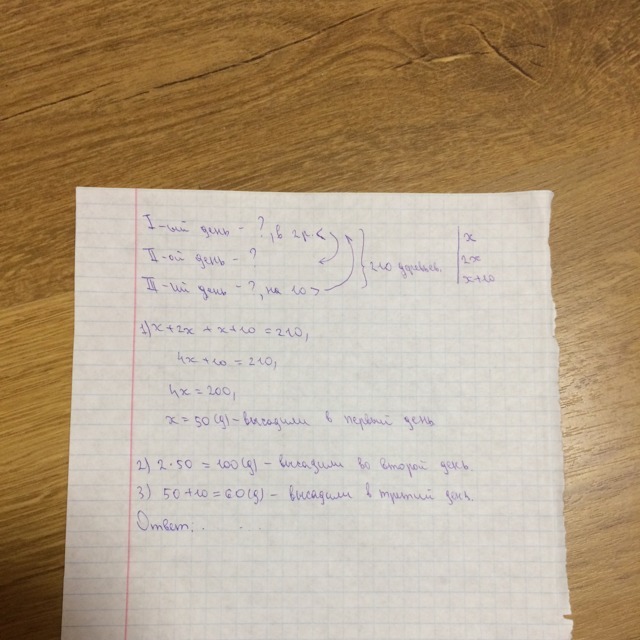 I-ый день - ?, в 2 р. <
II-ой день - ?
III-ий день - ?, на 10 >
} 210
x
2x
x+10
1) x + 2x + x + 10 = 210,
4x + 10 = 210,
4x = 200,
x = 50 (д) - высадили в первый день
2) 2 · 50 = 100 (д) - высадили во второй день.
3) 50 + 10 = 60 (д) - высадили в третий день.
Ответ: . . . .